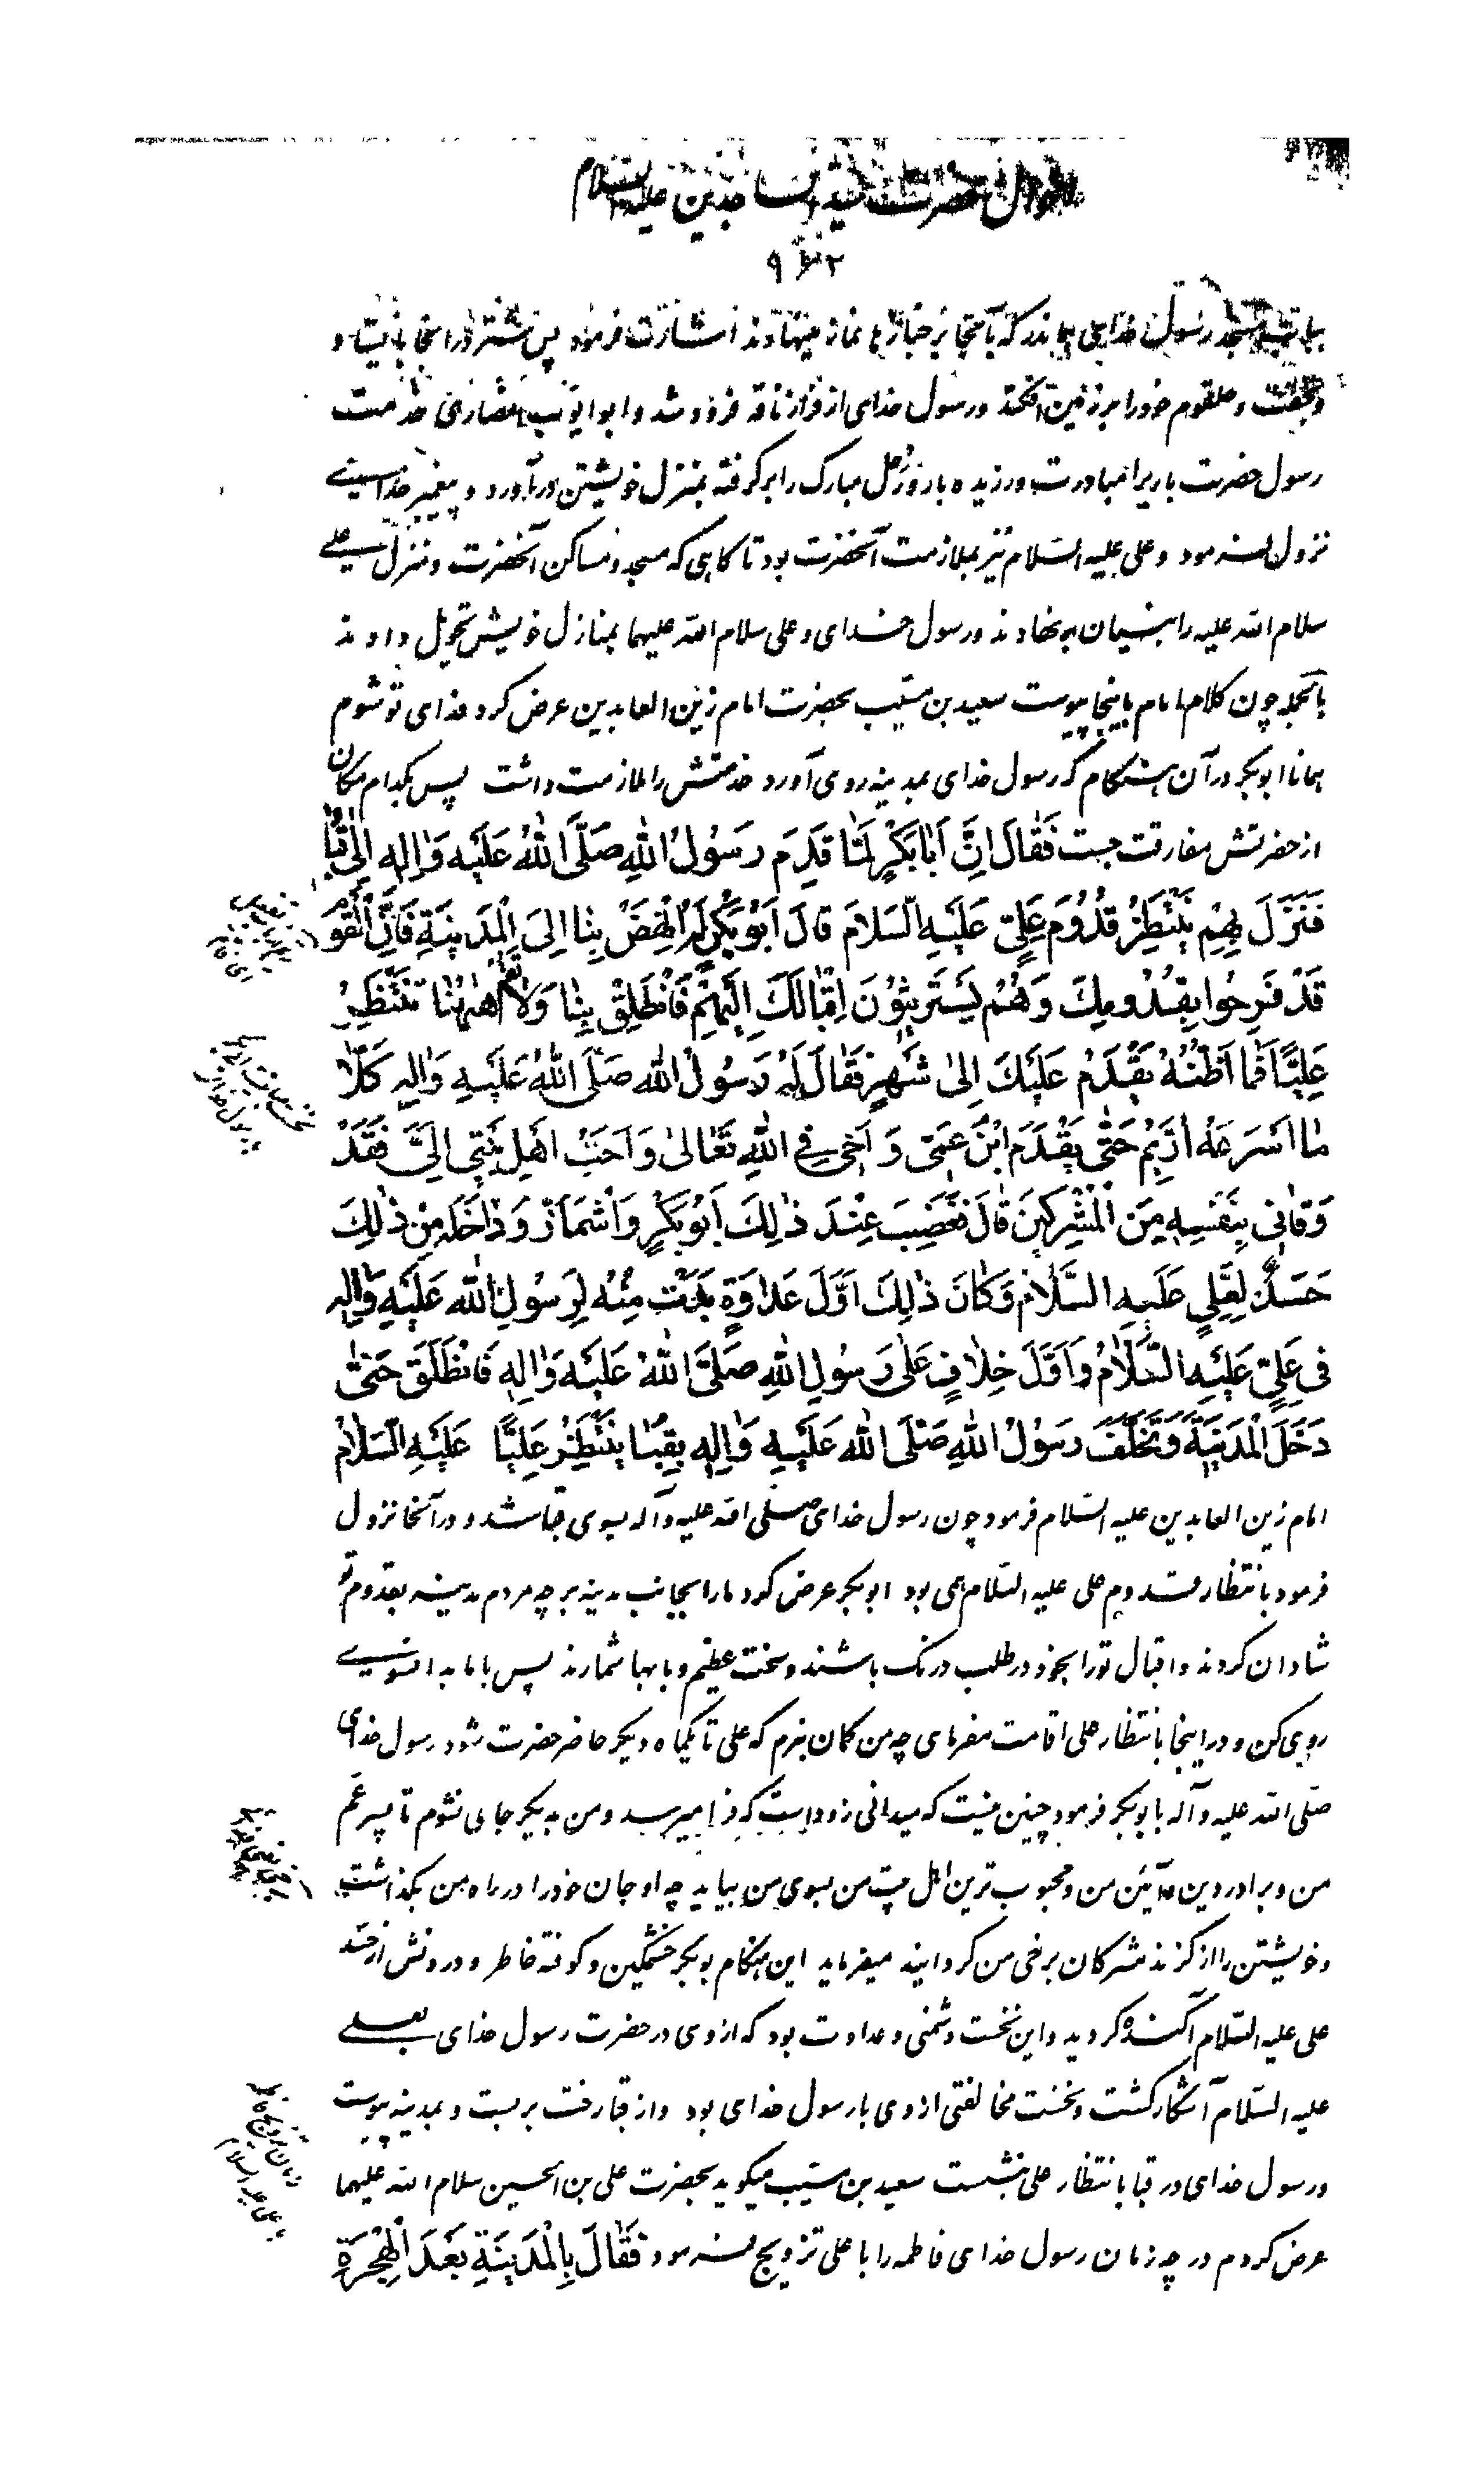 احوال حضرت سید الساجدین علیه السلام
بباب مسجد رسول خدای که آنجا بر جنازها نماز مینهادند اشارت فرمود پس شتر در آنجا بایستاد و
و بخفت و حلقوم خود را بر زمین افکند و رسول خدای از فراز ناقه فرود شد و ابو ایوب انصاری خدمت
رسول حضرت باری را مبادرت ورزیده بار و رحل مبارک را برگرفته بمنزل خویشتن درآورد و پیغمبر خدا
نزول فرمود و علی علیه السلام نیز بملازمت آنحضرت بود تا گاهی که مسجد و مساکن آنحضرت و منزل علی
سلام الله علیه را بنیان برنهادند و رسول خدای و علی سلام الله علیهما بمنازل خویش تحویل دادند
بالجمله چون کلام امام باینجا پیوست سعید بن مسیب بحضرت امام زین العابدین عرض کرد فدای تو شوم
همانا ابوبکر در آن هنگام که رسول خدای بمدینه روی آورد خدمتش را ملازمت داشت پس بکدام مکان
از حضرتش مفارقت جست فَقالَ اِنَّ اَبا بَکْرٍ لَمّا قَدِمَ رَسُولُ اللهِ صَلَّی اللهُ عَلَیْهِ وَالِهِ اِلی قُبا
فَنَزَلَ بِهِمْ یَنْتَظِرُ قُدُومَ عَلِیٍّ عَلَیْهِ السَّلامَ قالَ اَبُو بَکْرٍ لَهُ اِنْهَضْ بِنا اِلیَ الْمَدینَةِ فَاِنَّ الْقَوْمَ
قَدْ فَرِحُوا بِقُدُومِکَ وَهُمْ یَسْتَریثُونَ اِقْبالَکَ اِلَیْهِمْ فَانْطَلِقْ بِنا وَلا تُقِمْ هاهُنا تَنْتَظِرُ
عَلِیًّا فَما اَظُنُّهُ یَقْدَمُ عَلَیْکَ اِلی شَهْرٍ فَقالَ لَهُ رَسُولُ اللهِ صَلَّی اللهُ عَلَیْهِ وَالِهِ کَلّا
ما اَسْرَعَهُ وَلَسْتُ اَریمُ حَتّی یَقْدَمَ ابْنُ عَمّی وَ اَخی فِی اللهِ تَعالی وَ اَحَبُّ اَهْلِ بَیْتی اِلَیَّ فَقَدْ
وَقانی بِنَفْسِهِ مِنَ الْمُشْرِکینَ قالَ فَغَضِبَ عِنْدَ ذلِکَ اَبُو بَکْرٍ وَاشْمَاَزَّ وَ داخَلَهُ مِنْ ذلِکَ
حَسَدٌ لِعَلِیٍّ عَلَیْهِ السَّلامُ وَکانَ ذلِکَ اَوَّلَ عَداوَةٍ بَدَتْ مِنْهُ لِرَسُولِ اللهِ عَلَیْهِ وَالِهِ
فی عَلِیٍّ عَلَیْهِ السَّلامُ وَ اَوَّلَ خِلافٍ عَلی رَسُولِ اللهِ صَلَّی اللهُ عَلَیْهِ وَالِهِ فَانْطَلَقَ حَتّی
دَخَلَ الْمَدینَةَ وَتَخَلَّفَ رَسُولُ اللهِ صَلَّی اللهُ عَلَیْهِ وَالِهِ بِقُبا یَنْتَظِرُ عَلِیًّا عَلَیْهِ السَّلامُ
امام زین العابدین علیه السلام فرمود چون رسول خدای صلی الله علیه و آله بسوی قبا شد و در آنجا نزول
فرمود بانتظار قدوم علی علیه السلام همی بود ابوبکر عرض کرد ما را بجانب مدینه بر چه مردم مدینه بقدوم تو
شادان کردند و اقبال تو را بخود در طلب درنگ باشند و سخت عظیم و با بها شمارند پس با ما بدانسوی
روی کن و در اینجا بانتظار علی اقامت مفرمای چه من گمان نبرم که علی تا یکماه دیگر حاضر حضرت شود رسول خدای
صلی الله علیه و آله بابوبکر فرمود چنین نیست که میدانی زود است که فرا میرسد و من بدیگر جای نشوم تا پسر عم
من و برادر دین و آئین من و محبوب ترین اهل بیت من بسوی من بیاید چه او جان خود را در راه من بگذاشت
و خویشتن را از گزند مشرکان برخی من گردانید میفرماید این هنگام بوبکر خشمگین و کوفته خاطر و درونش از حسد
علی علیه السلام آکنده گردید و این نخست دشمنی و عداوت بود که از وی در حضرت رسول خدای بعلی
علیه السلام آشکار گشت و نخست مخالفتی از وی با رسول خدای بود و از قبا رخت بر بست و بمدینه پیوست
و رسول خدای در قبا بانتظار علی بنشست سعید بن مسیب میگوید بحضرت علی بن الحسین سلام الله علیهما
عرض کردم در چه زمان رسول خدای فاطمه را با علی تزویج فرمود فَقالَ بِالْمَدینَةِ بَعْدَ الْهِجْرَةِ